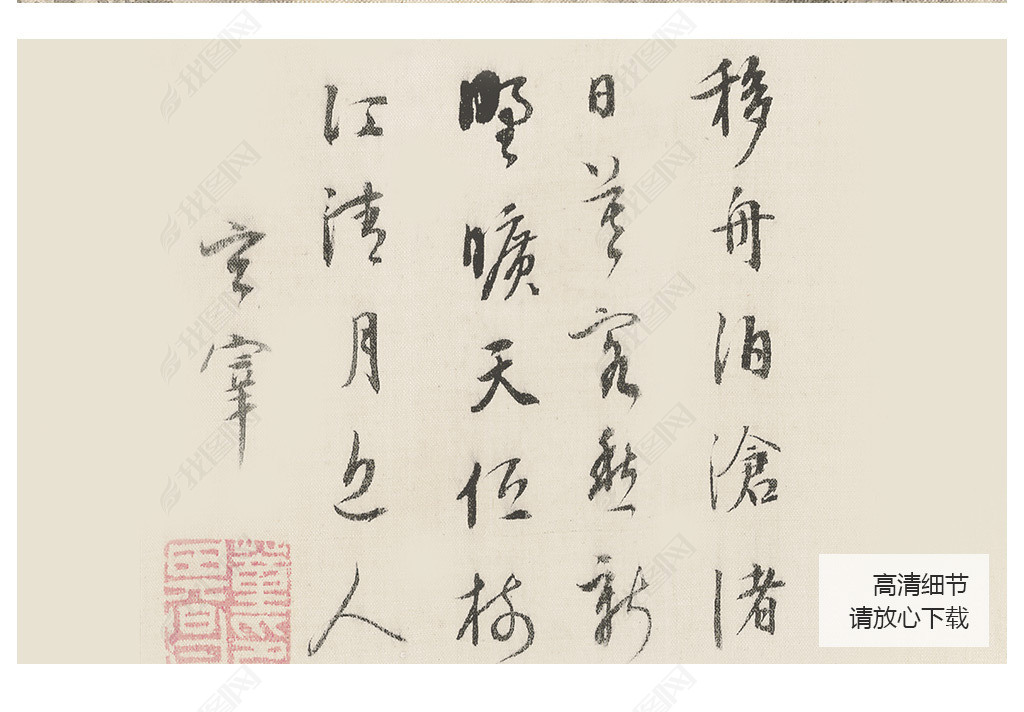 移舟泊滄渚
日暮客愁新
野曠天低樹
江清月近人
玄宰
高清细节
请放心下载
找图网